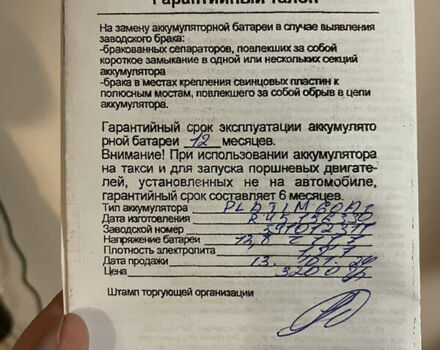 Гарантийный талон
На замену аккумуляторной батареи в случае выявления
заводского брака:
-бракованных сепараторов, повлекших за собой
короткое замыкание в одной или нескольких секций
аккумулятора
-брака в местах крепления свинцовых пластик к
полюсным мостам, повлекшего за собой обрыв в цепи
аккумулятора.
Гарантийный срок эксплуатации аккумулято
рной батареи 12 месяцев.
Внимание! При использовании аккумулятора
на такси и для запуска поршневых двигате-
лей, установленных не на автомобиле,
гарантийный срок составляет 6 месяцев.
Тип аккумулятора
Дата изготовления
Заводской номер
Напряжение батареи 12,8
Плотность электролита
Дата продажи 13.
Цена 3200
Штамп торгующей организации